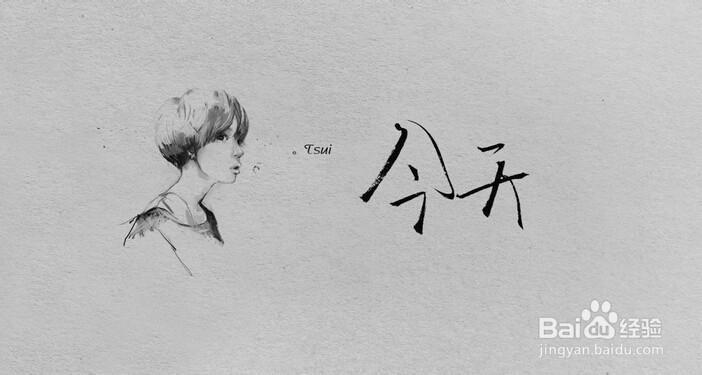 。Tsui
今天
Baidu经验
jingyan.baidu.com